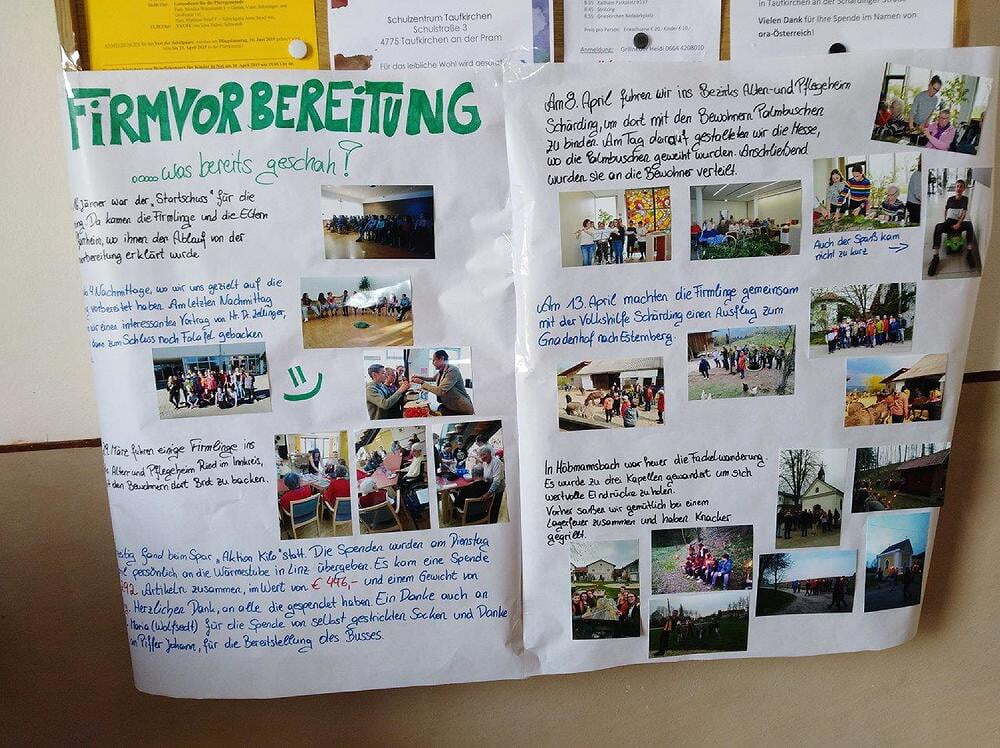 Schulzentrum Taufkirchen
Schulstraße 3
4775 Taufkirchen an der Pram
Für das leibliche Wohl wird gesorgt
Anmeldung:
in Taufkirchen an der Schärdinger Straße
Vielen Dank für Ihre Spende im Namen von
ora-Österreich!
FIRMVORBEREITUNG
..... was bereits geschah!
Jänner war der „Startschuss" für die
Da kamen die Firmlinge und die Eltern
wo ihnen der Ablauf von der
erklärt wurde
4 Nachmittage, wo wir uns gezielt auf die
vorbereitet haben. Am letzten Nachmittag
einen interessanten Vortrag von Hr. Dr. Zellinger,
zum Schluss noch Falafel gebacken
März fuhren einige Firmlinge ins
Alten- und Pflegeheim Ried im Innkreis,
den Bewohnern dort Brot zu backen.
fand beim Spar „Aktion Kilo" statt. Die Spenden wurden am Dienstag
persönlich an die Wärmestube in Linz übergeben. Es kam eine Spende
92 Artikeln zusammen, im Wert von € 446,- und einem Gewicht von
Herzlichen Dank, an alle die gespendet haben. Ein Danke auch an
Maria (Wolfsedt) für die Spende von selbst gestrickten Socken und Danke
Piffer Johann, für die Bereitstellung des Busses.
Am 8. April fuhren wir ins Bezirks Alten- und Pflegeheim
Schärding, um dort mit den Bewohnern Palmbuschen
zu binden. Am Tag darauf gestalteten wir die Messe,
wo die Palmbuschen geweiht wurden. Anschließend
wurden sie an die Bewohner verteilt.
Auch der Spaß kam
nicht zu kurz
Am 13. April machten die Firmlinge gemeinsam
mit der Volkshilfe Schärding einen Ausflug zum
Gnadenhof nach Esternberg.
In Höbmannsbach war heuer die Fackelwanderung.
Es wurde zu drei Kapellen gewandert um sich
wertvolle Eindrücke zu holen.
Vorher saßen wir gemütlich bei einem
Lagerfeuer zusammen und haben Knacker
gegrillt.